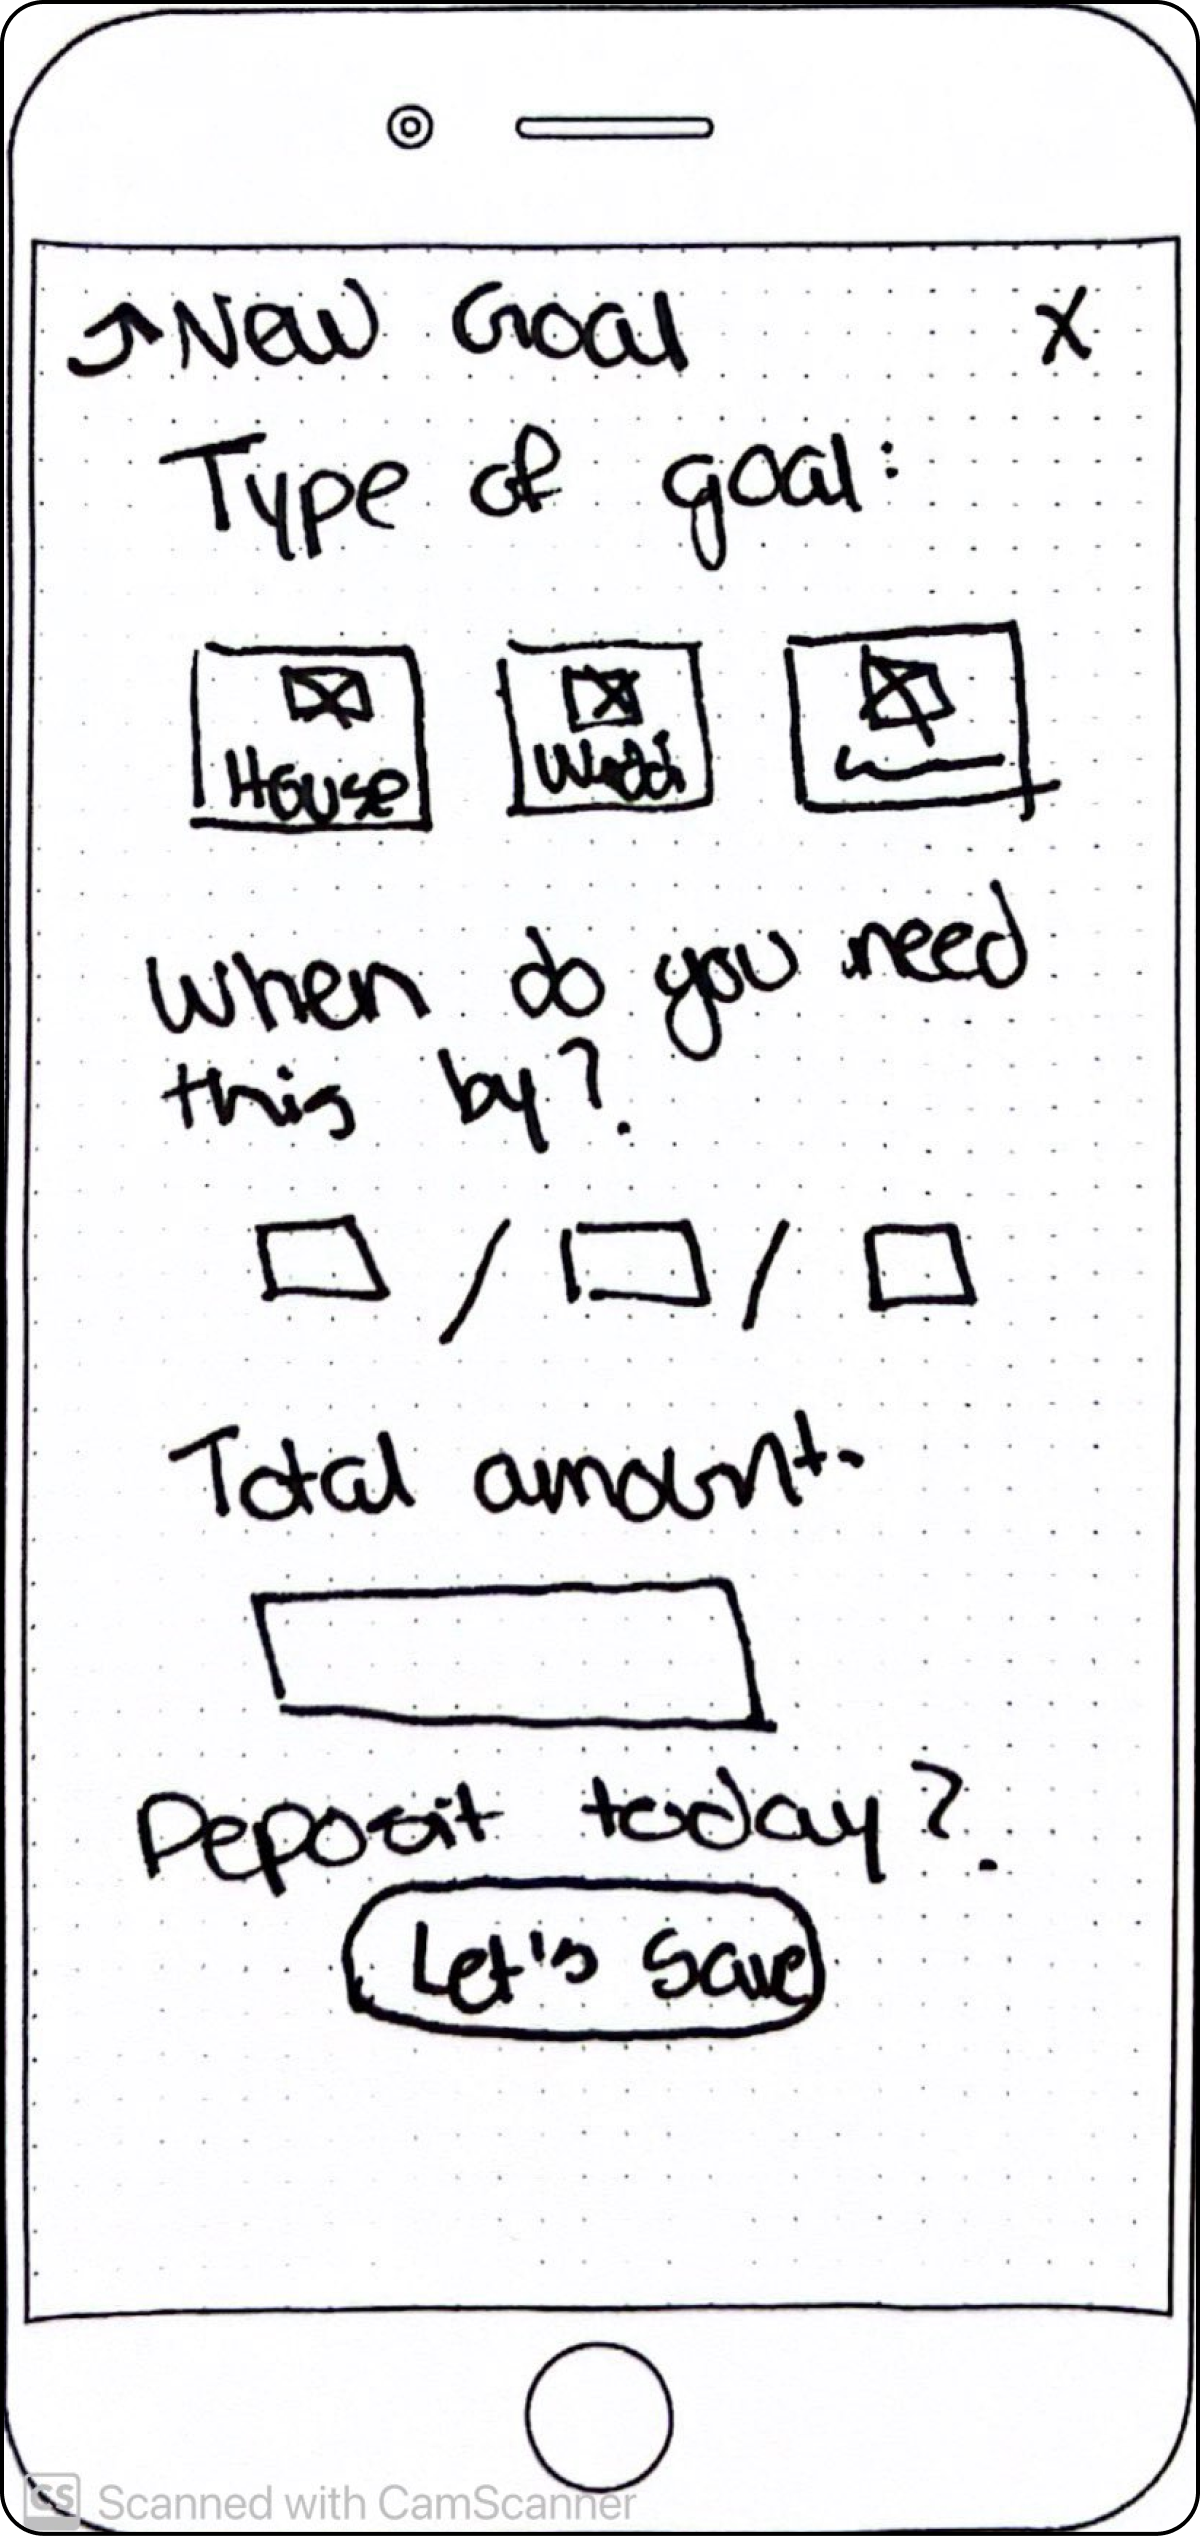 New Goal X
Type of goal:
House Weddi
When do you need
this by?
/ /
Total amount.
Deposit today?
Let's Save
CS Scanned with CamScanner